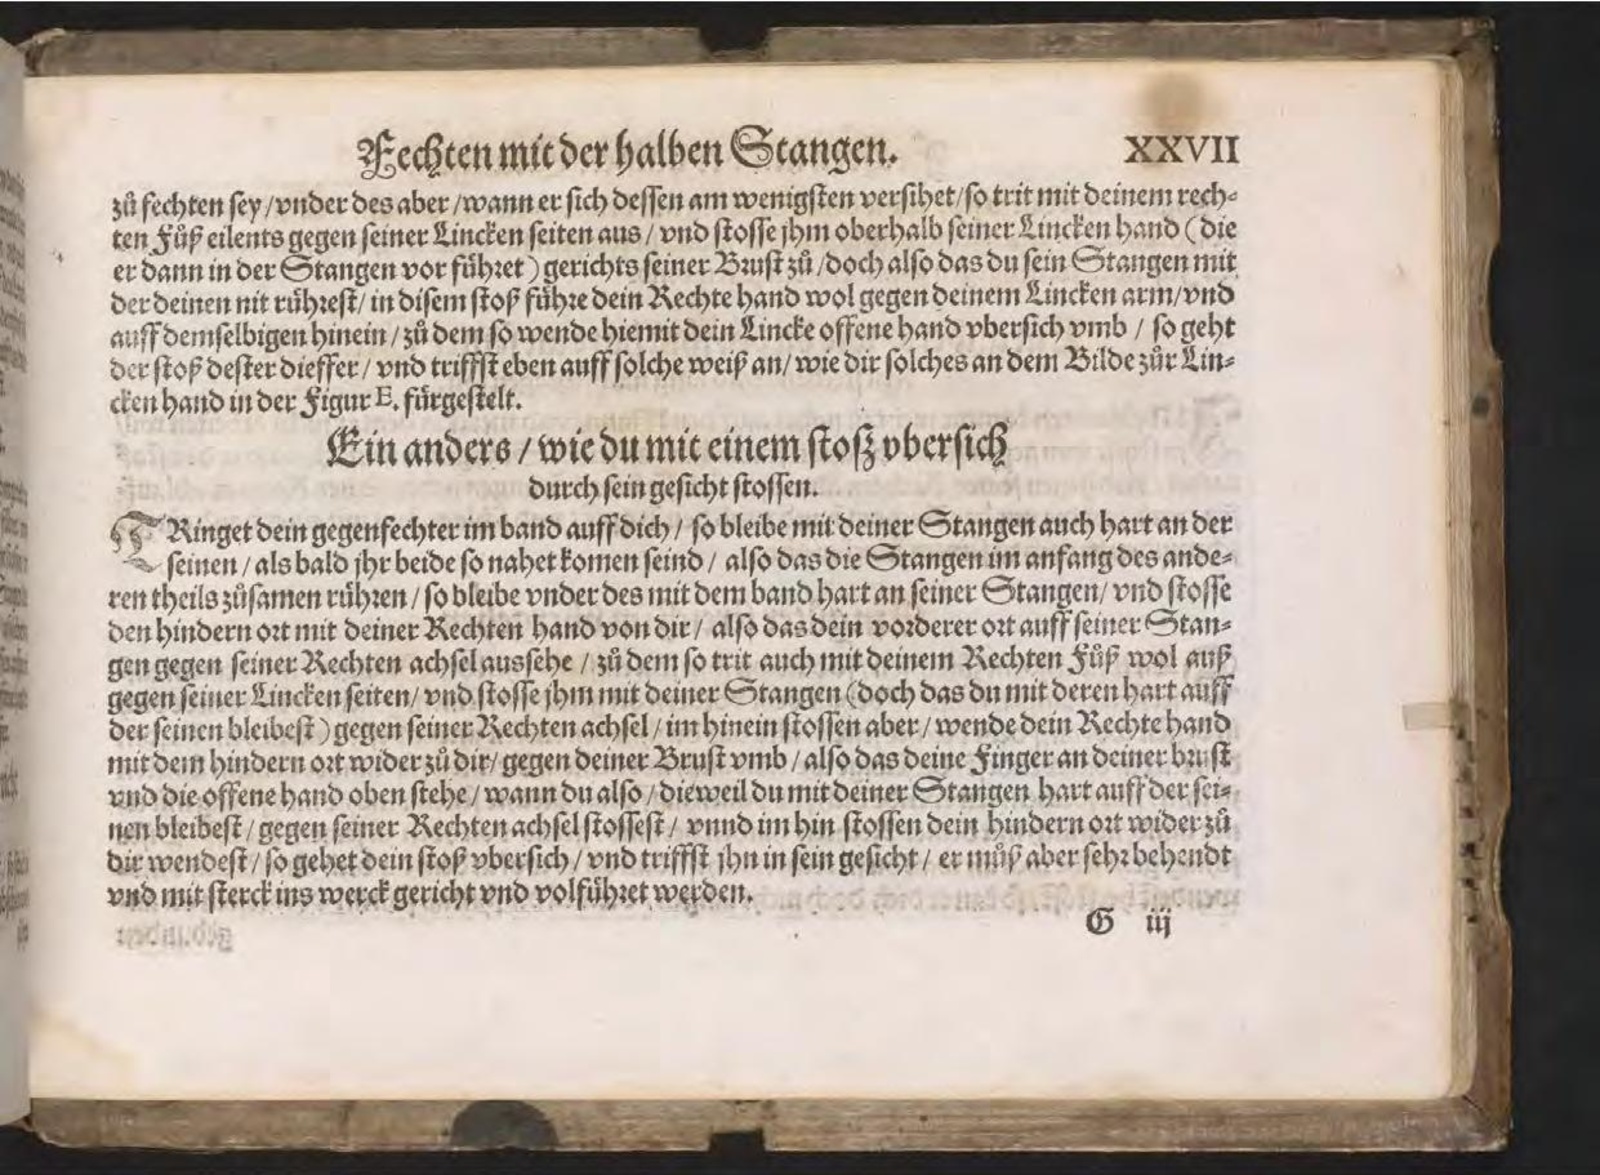 Fechten mit der halben Stangen. XXVII
zů fechten sey / vnder des aber / wann er sich dessen am wenigsten versihet / so trit mit deinem rech-
ten Fůß eilents gegen seiner Lincken seiten aus / vnd stosse jhm oberhalb seiner Lincken hand (die
er dann in der Stangen vor führet) gerichts seiner Brust zů / doch also das du sein Stangen mit
der deinen nit rührest / in disem stoß führe dein Rechte hand wol gegen deinem Lincken arm / vnd
auff demselbigen hinein / zů dem so wende hiemit dein Lincke offene hand vbersich vmb / so geht
der stoß dester dieffer / vnd triffst eben auff solche weiß an / wie dir solches an dem Bilde zůr Lin-
cken hand in der Figur E. fürgestelt.
Ein anders / wie du mit einem stosz vbersich
durch sein gesicht stossen.
TRinget dein gegenfechter im band auff dich / so bleibe mit deiner Stangen auch hart an der
seinen / als bald jhr beide so nahet komen seind / also das die Stangen im anfang des ande-
ren theils zůsamen rühren / so bleibe vnder des mit dem band hart an seiner Stangen / vnd stosse
den hindern ort mit deiner Rechten hand von dir / also das dein vorderer ort auff seiner Stan-
gen gegen seiner Rechten achsel aussehe / zů dem so trit auch mit deinem Rechten Fůß wol auß
gegen seiner Lincken seiten / vnd stosse jhm mit deiner Stangen (doch das du mit deren hart auff
der seinen bleibest) gegen seiner Rechten achsel / im hinein stossen aber / wende dein Rechte hand
mit dem hindern ort wider zů dir / gegen deiner Brust vmb / also das deine Finger an deiner brust
vnd die offene hand oben stehe / wann du also / dieweil du mit deiner Stangen hart auff der sei-
nen bleibest / gegen seiner Rechten achsel stossest / vnnd im hin stossen dein hindern ort wider zů
dir wendest / so gehet dein stoß vbersich / vnd triffst jhn in sein gesicht / er můß aber sehr behendt
vnd mit sterck ins werck gericht vnd volführet werden.
G iij